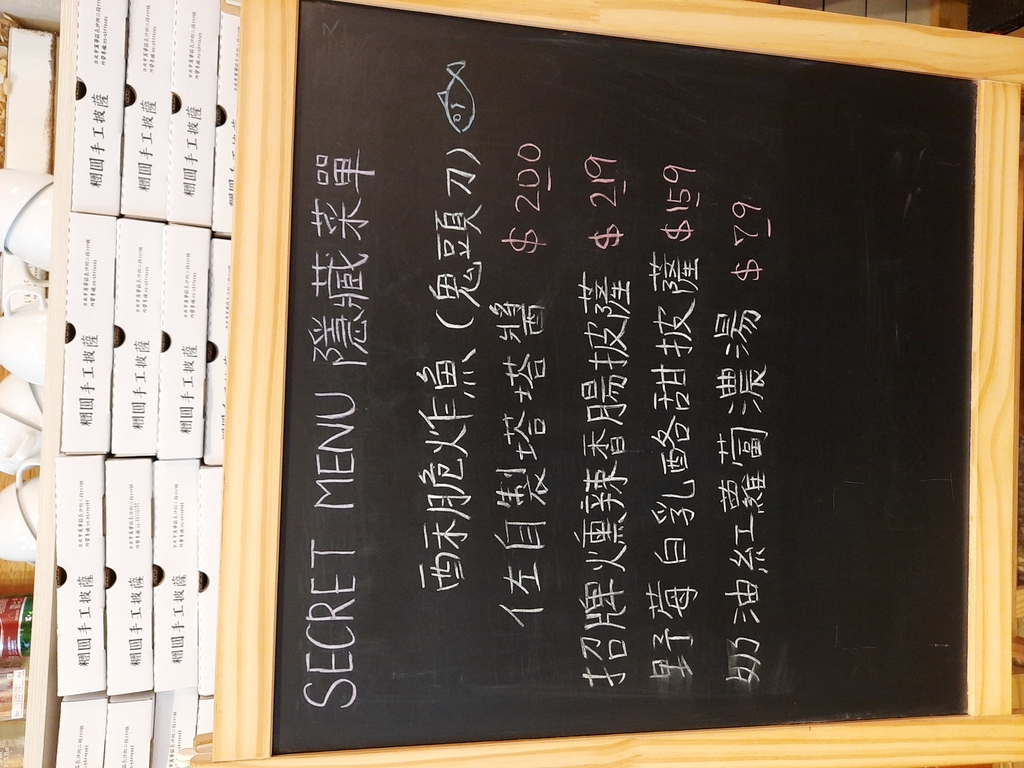 糰圓手工披薩
糰圓手工披薩
糰圓手工披薩
糰圓手工披薩
糰圓手工披薩
糰圓手工披薩
糰圓手工披薩
糰圓手工披薩
糰圓手工披薩
SECRET MENU 隱藏菜單
酥脆炸魚 (鬼頭刀)
佐自製塔塔醬 $200
招牌燻辣香腸披薩 $219
野莓白乳酪甜披薩 $159
奶油紅蘿蔔濃湯 $79